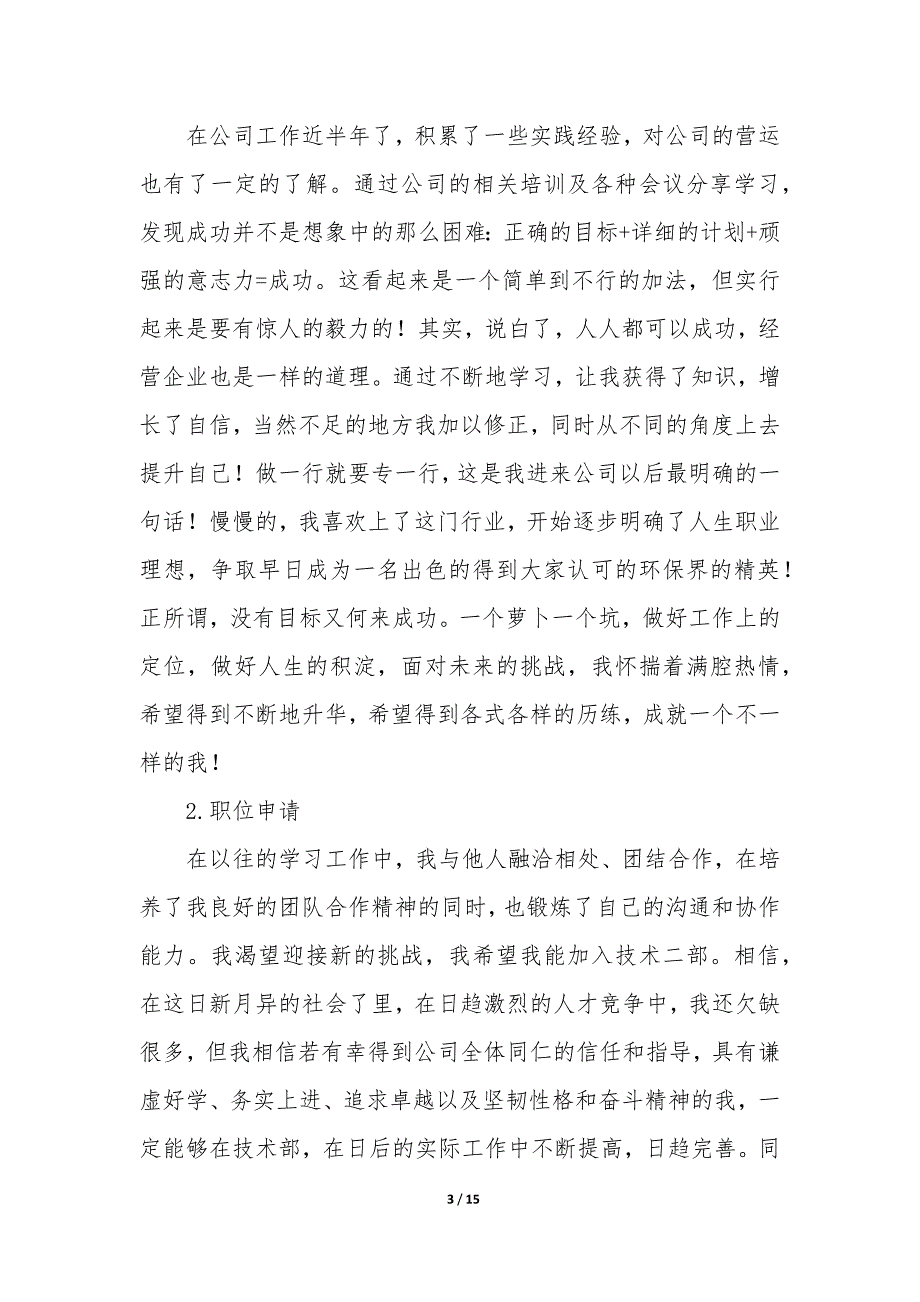 在公司工作近半年了，积累了一些实践经验，对公司的营运
也有了一定的了解。通过公司的相关培训及各种会议分享学习，
发现成功并不是想象中的那么困难：正确的目标+详细的计划+顽
强的意志力=成功。这看起来是一个简单到不行的加法，但实行
起来是要有惊人的毅力的！其实，说白了，人人都可以成功，经
营企业也是一样的道理。通过不断地学习，让我获得了知识，增
长了自信，当然不足的地方我加以修正，同时从不同的角度上去
提升自己！做一行就要专一行，这是我进来公司以后最明确的一
句话！慢慢的，我喜欢上了这门行业，开始逐步明确了人生职业
理想，争取早日成为一名出色的得到大家认可的环保界的精英！
正所谓，没有目标又何来成功。一个萝卜一个坑，做好工作上的
定位，做好人生的积淀，面对未来的挑战，我怀揣着满腔热情，
希望得到不断地升华，希望得到各式各样的历练，成就一个不一
样的我！
2.职位申请
在以往的学习工作中，我与他人融洽相处、团结合作，在培
养了我良好的团队合作精神的同时，也锻炼了自己的沟通和协作
能力。我渴望迎接新的挑战，我希望我能加入技术二部。相信，
在这日新月异的社会了里，在日趋激烈的人才竞争中，我还欠缺
很多，但我相信若有幸得到公司全体同仁的信任和指导，具有谦
虚好学、务实上进、追求卓越以及坚韧性格和奋斗精神的我，一
定能够在技术部，在日后的实际工作中不断提高，日趋完善。同
3 / 15